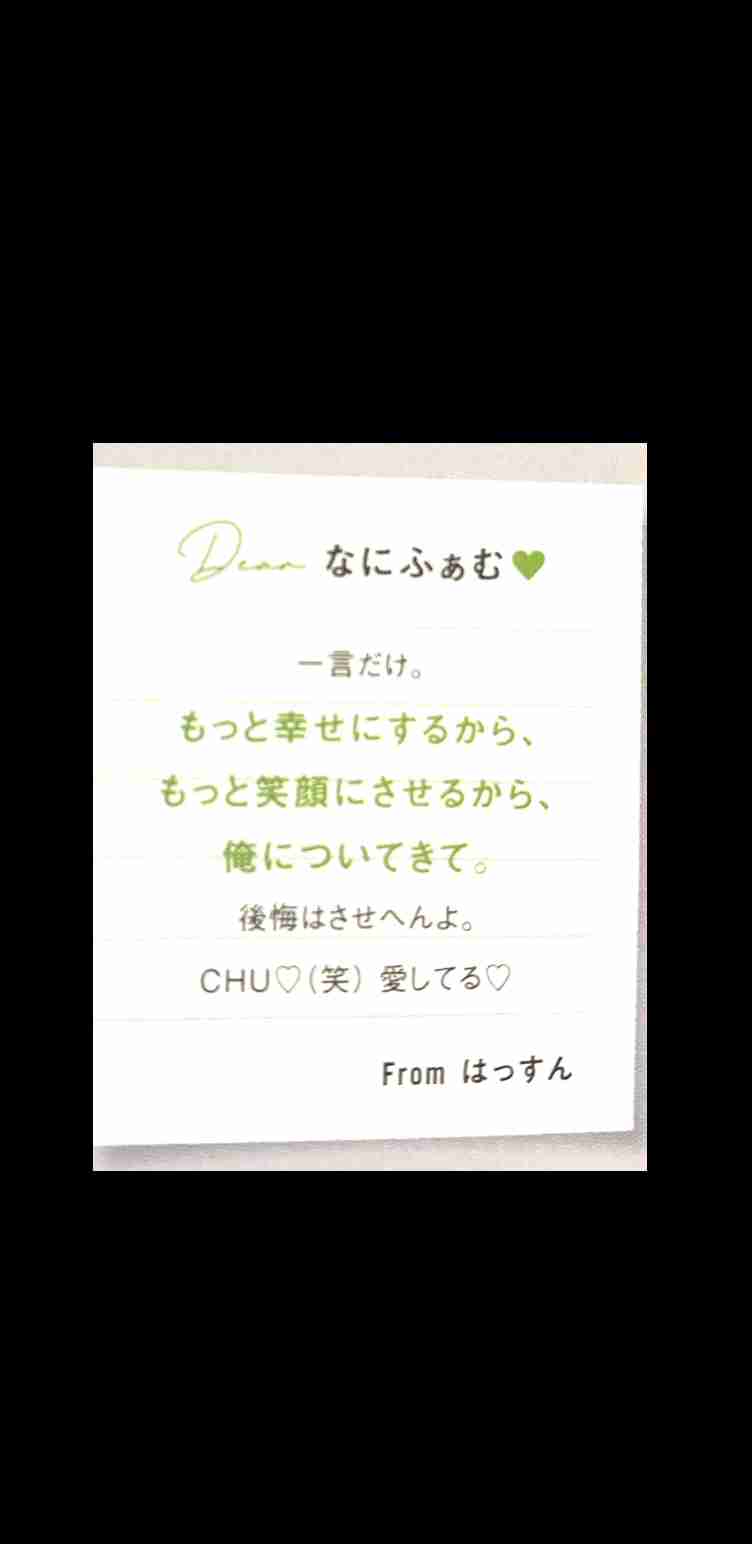 Dear なにふぁむ💚
一言だけ。
もっと幸せにするから、
もっと笑顔にさせるから、
俺についてきて。
後悔はさせへんよ。
CHU♡(笑) 愛してる♡
From はっすん